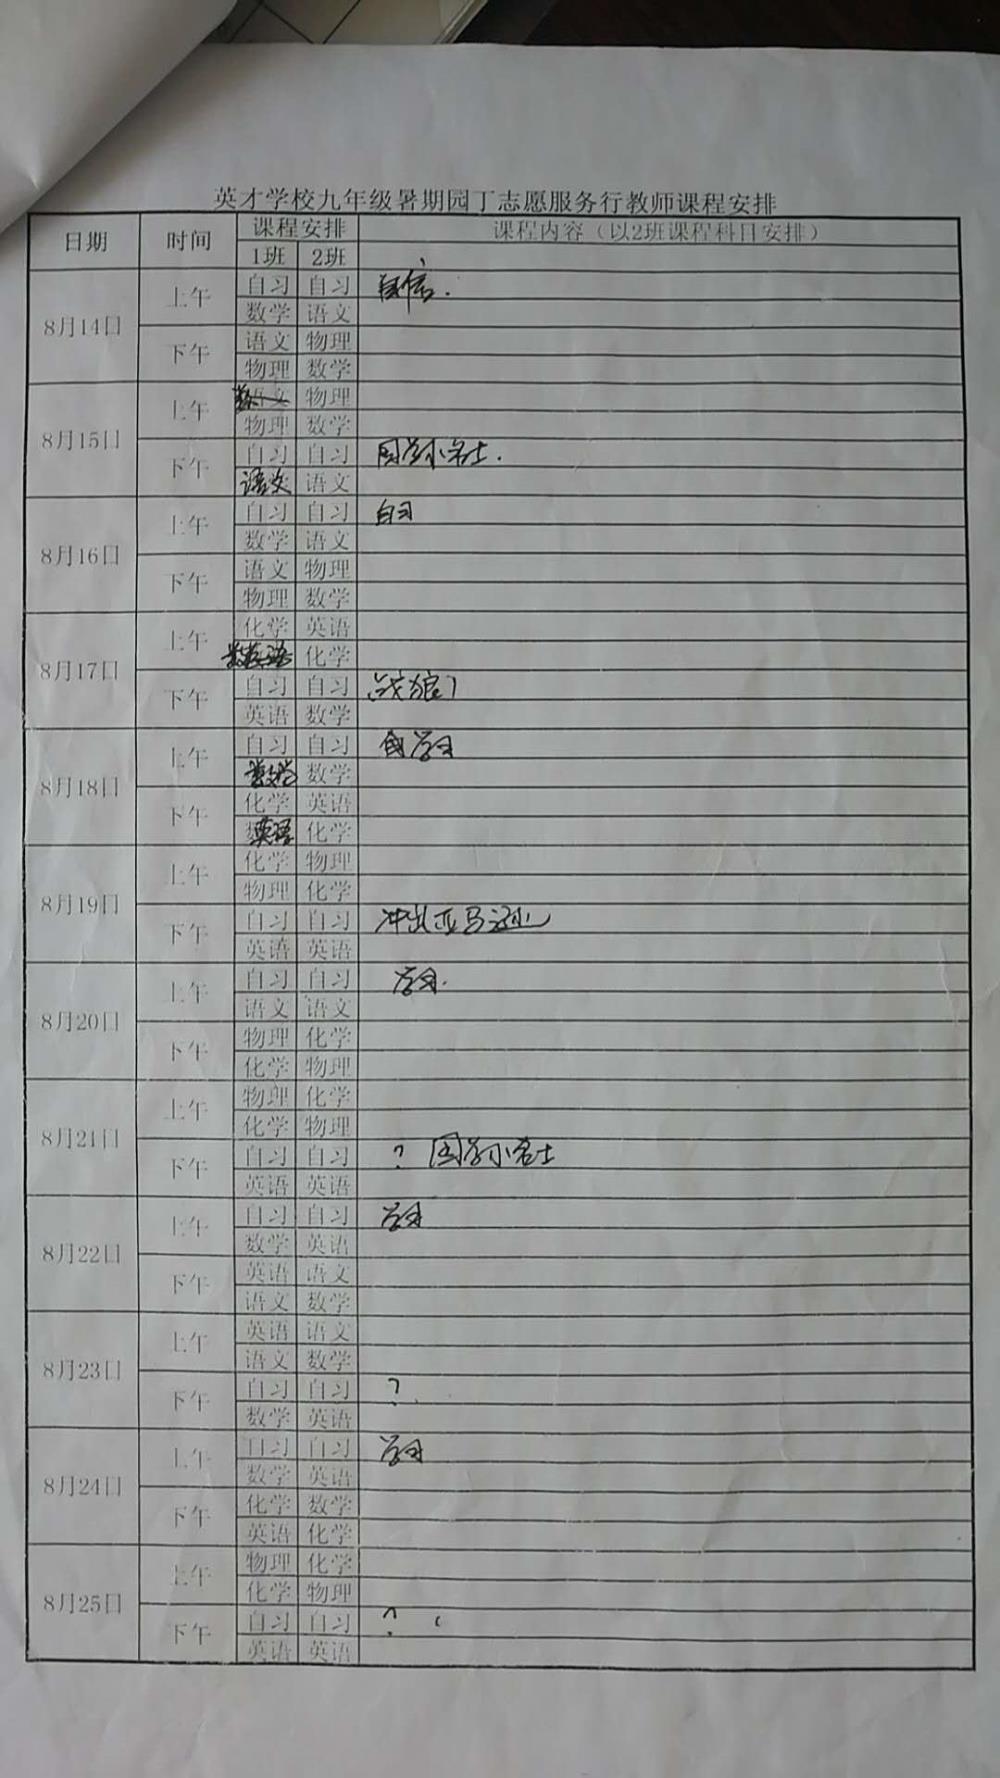 英才学校九年级暑期园丁志愿服务行教师课程安排
日期 时间 课程安排 课程内容（以2班课程科目安排）
1班 2班
8月14日 上午 自习 自习 自信.
数学 语文
下午 语文 物理
物理 数学
8月15日 上午 物理
物理 数学
下午 自习 自习 国学小名士.
语文 语文
8月16日 上午 自习 自习 自习
数学 语文
下午 语文 物理
物理 数学
8月17日 上午 化学 英语
化学
下午 自习 自习 战狼1
英语 数学
8月18日 上午 自习 自习 自学习
数学 数学
下午 化学 英语
英语 化学
8月19日 上午 化学 物理
物理 化学
下午 自习 自习 冲出亚马逊
英语 英语
8月20日 上午 自习 自习 学习.
语文 语文
下午 物理 化学
化学 物理
8月21日 上午 物理 化学
化学 物理
下午 自习 自习 ? 国学小名士
英语 英语
8月22日 上午 自习 自习 学习
数学 英语
下午 英语 语文
语文 数学
8月23日 上午 英语 语文
语文 数学
下午 自习 自习 ?
数学 英语
8月24日 上午 自习 自习 学习
数学 英语
下午 化学 数学
英语 化学
8月25日 上午 物理 化学
化学 物理
下午 自习 自习 ?
英语 英语